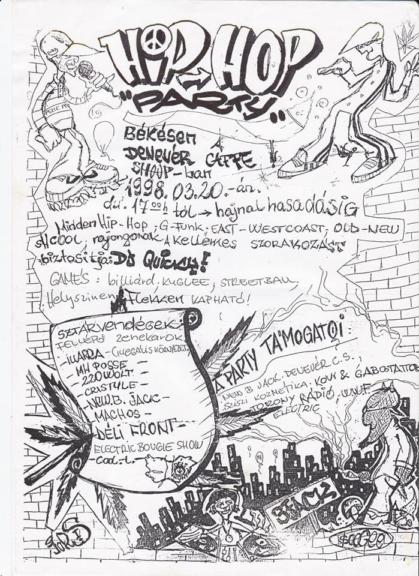 HIP HOP
"PARTY"
BÉKÉSEN A
DENEVÉR CAFFE
SHOP-ban !
1998. 03.20.-án.
du. 17 00h tól → hajnalhasadásig
Minden Hip-Hop, G-Funk, EAST-WESTCOAST, OLD-NEW
SHCOOL rajongónak A KELLEMES SZÓRAKOZÁST
biztosítja: DJ QUICKY!
GAMES: billiárd, kuglee, STREETBALL
Helyszínen A Flekken KAPHATÓ!
SZTÁRVENDÉGEK:
FELLÉPŐ ZENEKAROK
- KVARDA -
MH POSSE -
220 VOLT -
CRISTYLE -
N.W.B. JACK -
MACHOS -
DÉLI FRONT -
ELECTRIC BOUGIE SHOW
A PARTY TÁMOGATÓI
N.W.B. JACK, DENEVÉR C.S.,
SUSI KOZMETIKA,
TORONY RÁDIÓ,
ELECTRIC